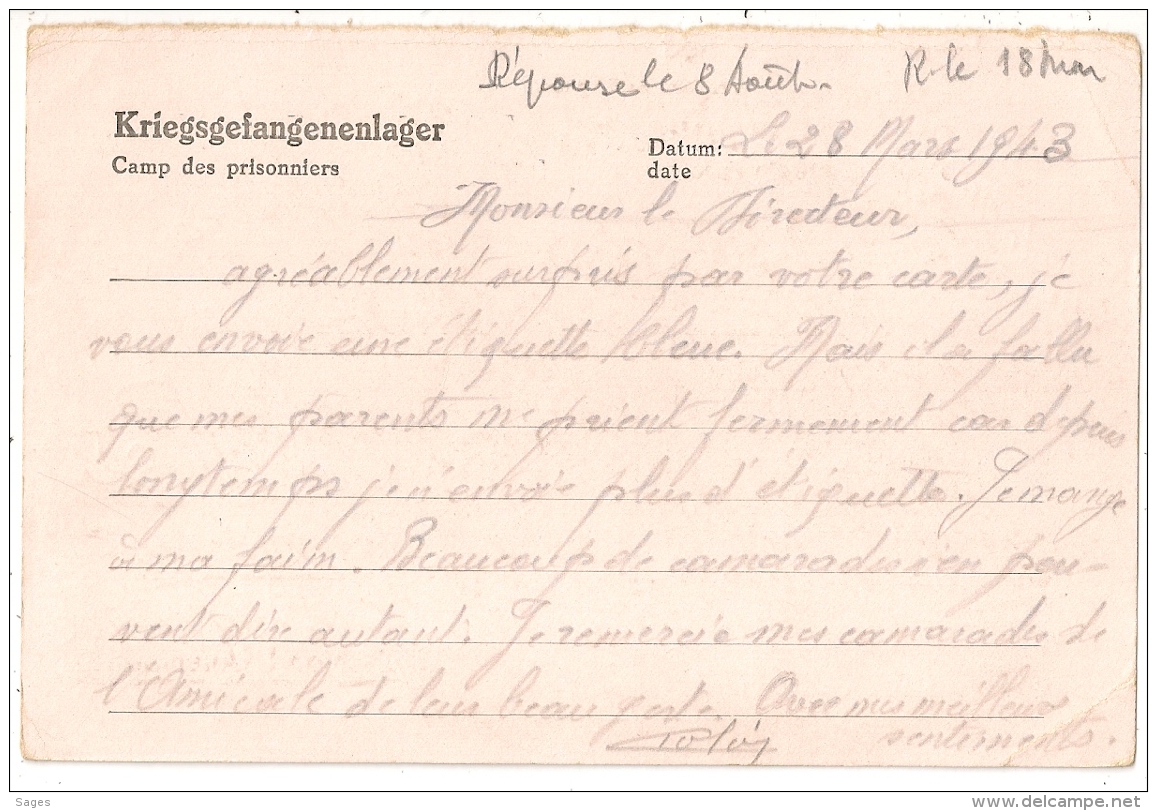 Réponse le 8 Août. R. le 18 Juin
Kriegsgefangenenlager
Camp des prisonniers
Datum: Le 28 Mars 1943
date
Monsieur le Directeur,
agréablement surpris par votre carte, je
vous envoie une étiquette bleue. Mais il a fallu
que mes parents me prient fermement car depuis
longtemps je n'envoie plus d'étiquette. Je mange
à ma faim. Beaucoup de camarades n'en peu-
vent dire autant. Je remercie mes camarades de
l'Amicale de leur beau geste. Avec mes meilleurs
sentiments.
Sages
delcampe.net